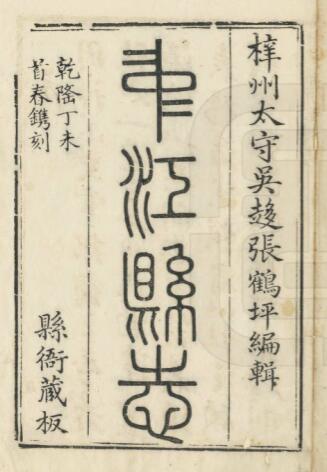 梓州太守吳趨張鶴坪編輯
中江縣志
乾隆丁未
首春鐫刻
縣衙藏板